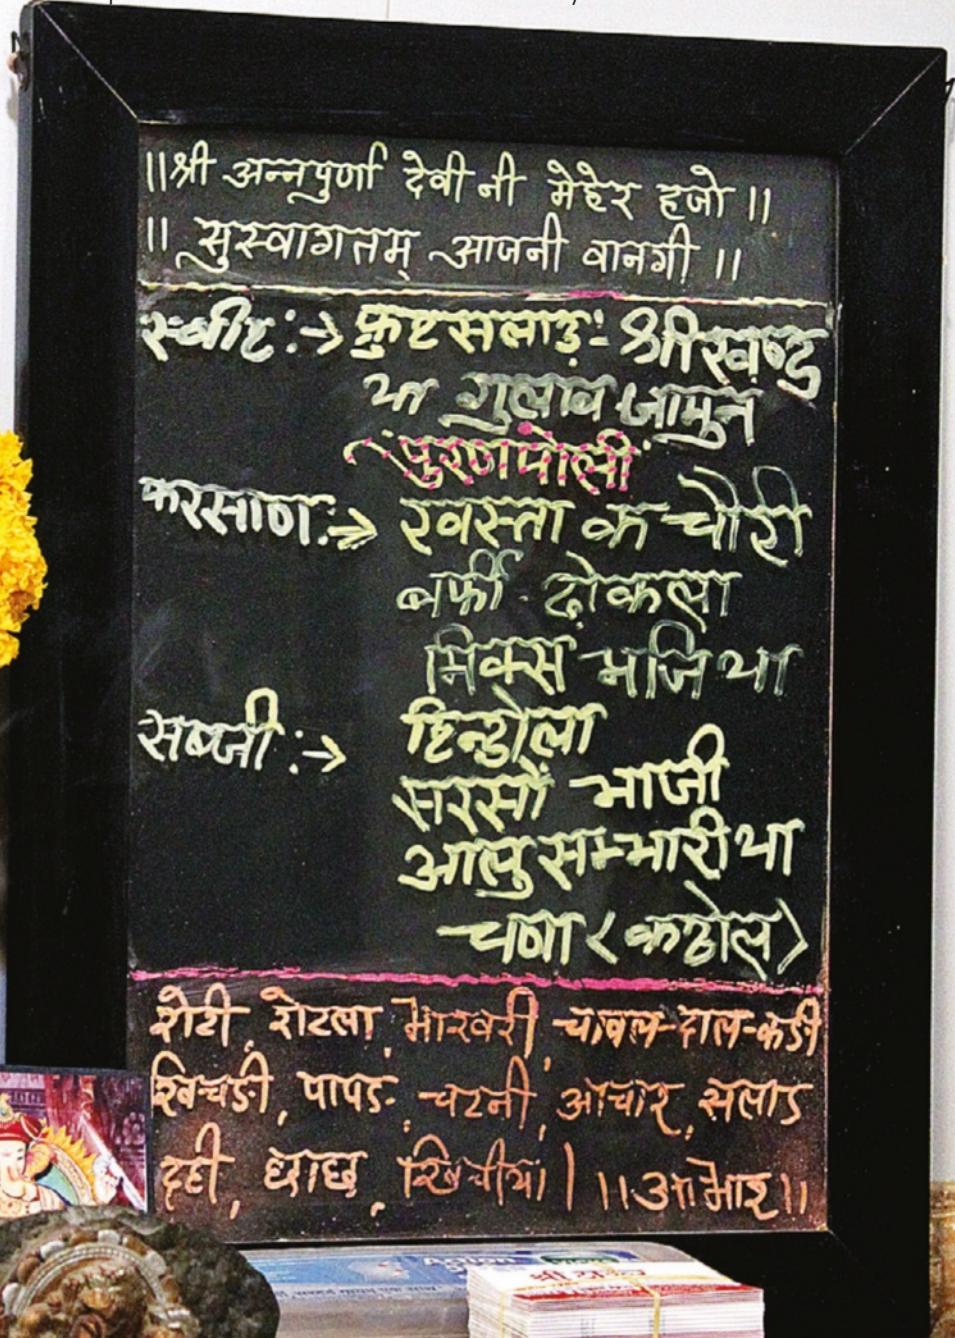 ॥श्री अन्नपुर्णा देवी नी मेहेर हजो ॥
॥ सुस्वागतम् आजनी वानगी ॥
स्वीट :→ फ्रुटसलाड : श्रीखण्ड
या गुलाब जामुन
पुरणपोली
फरसाण :→ खस्ता कचौरी
बर्फी ढोकला
मिक्स भजिया
सब्जी :→ हिन्डोला
सरसों भाजी
आलु सम्भारीया
चणा (कठोल)
रोटी, रोटला, भाखरी, चावल-दाल-कडी
खिचडी, पापड, चटनी, आचार, सलाड
दही, छाछ, खिचीया। ॥